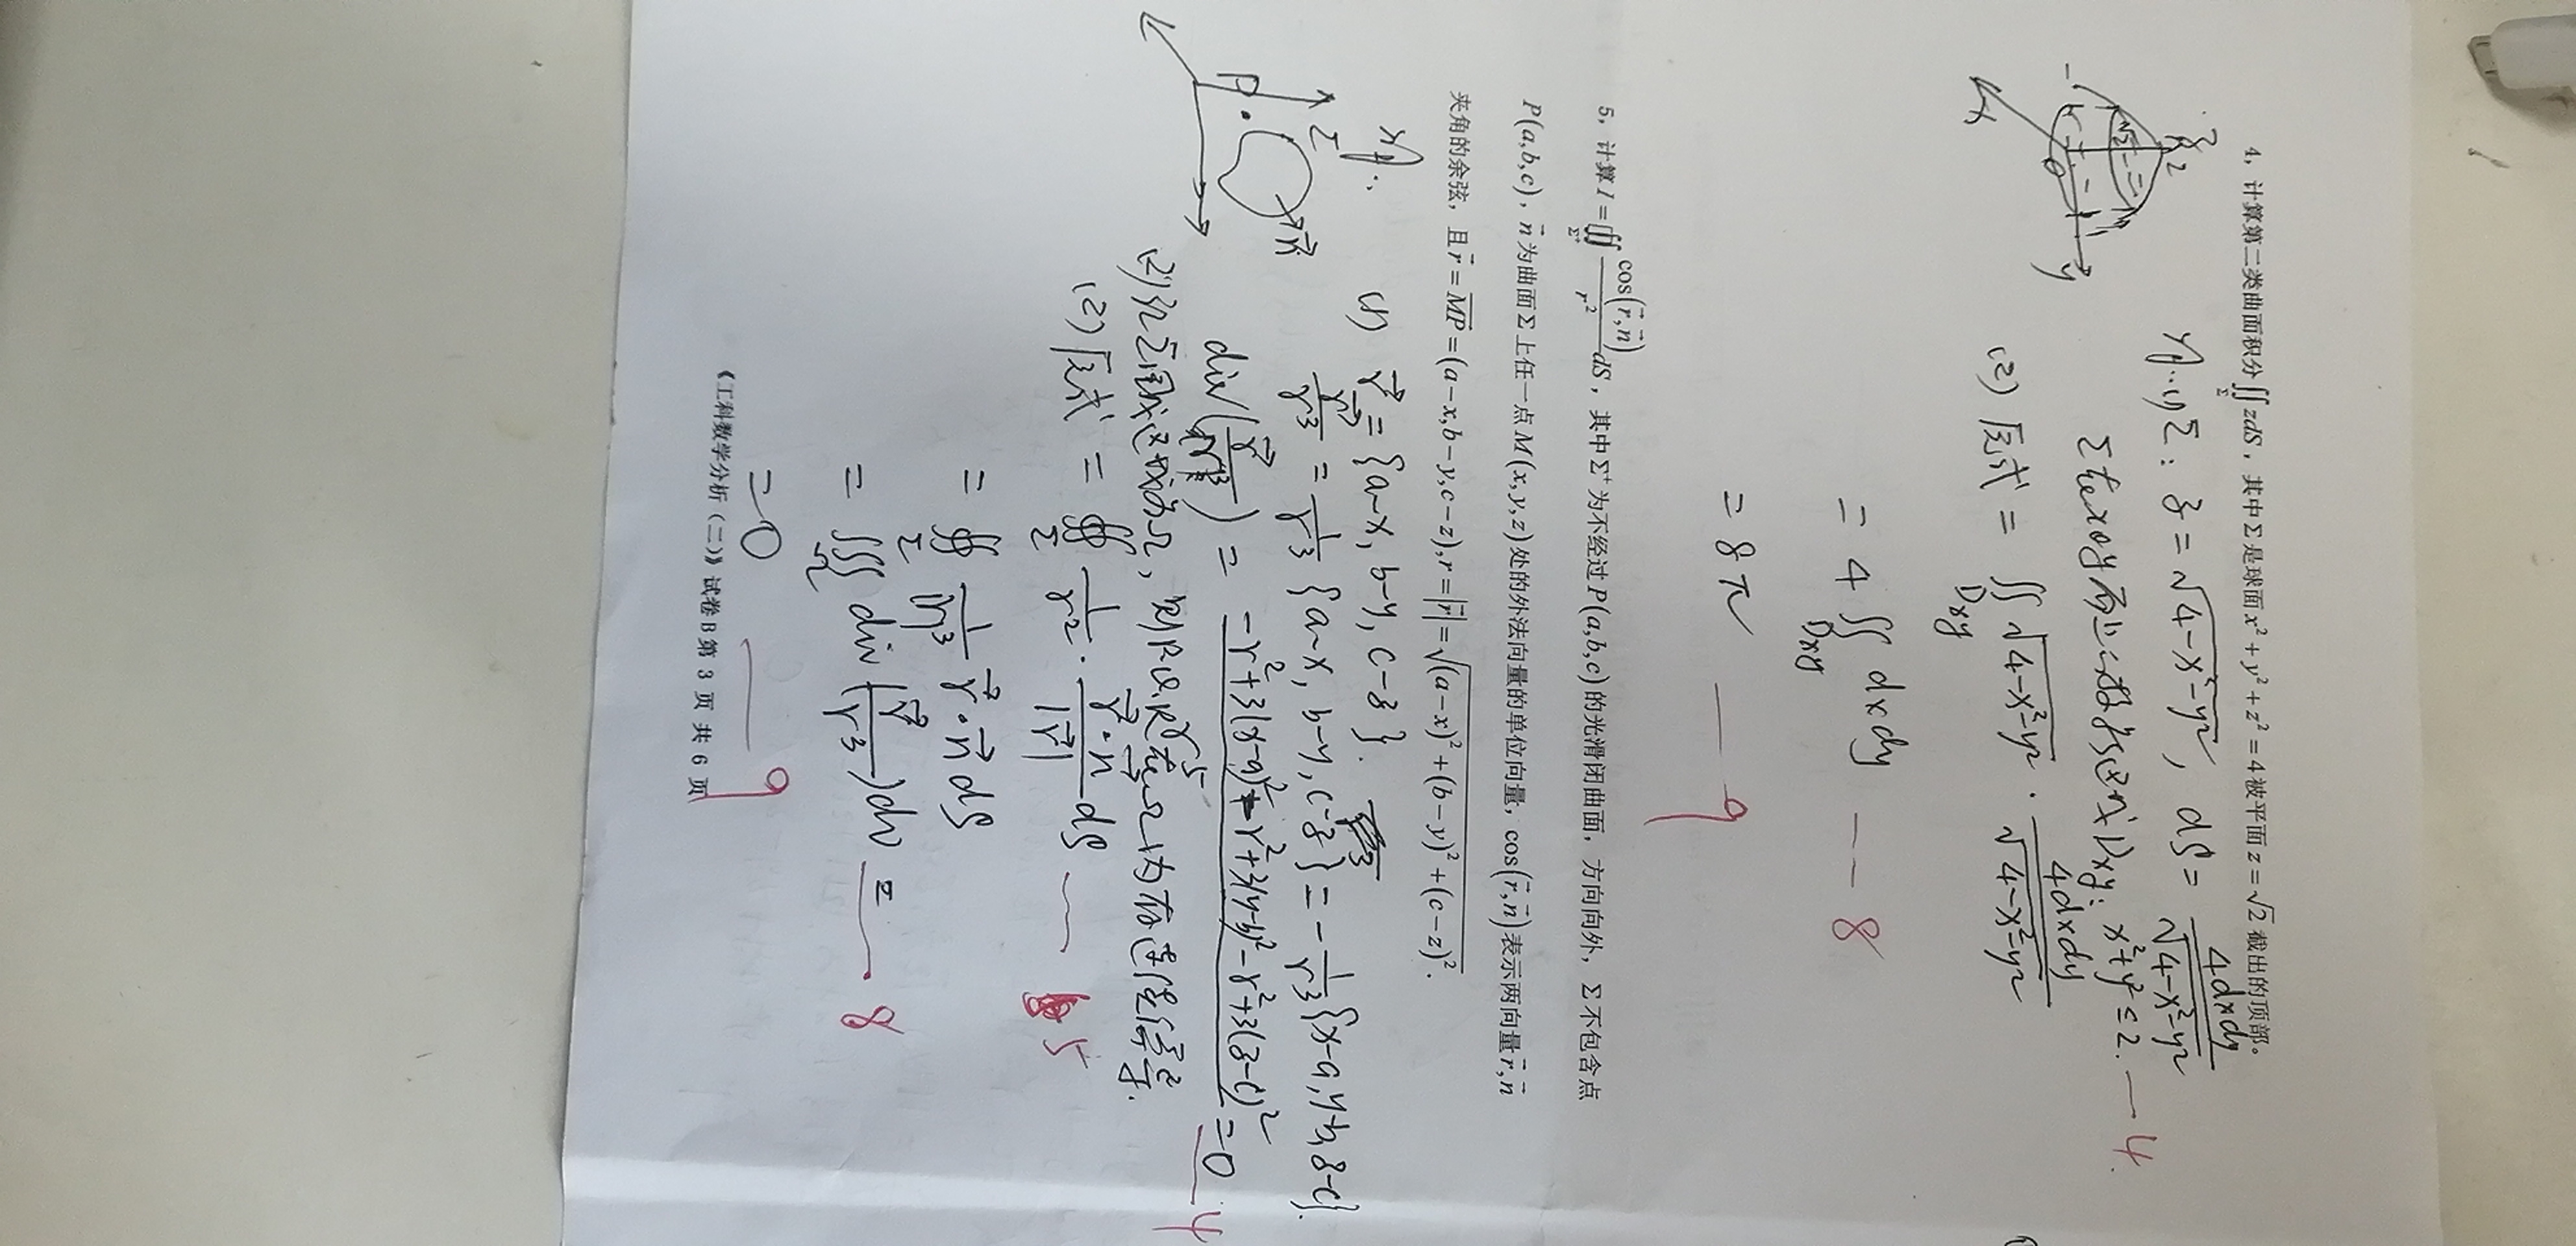 4，计算第二类曲面积分∬_Σ zdS，其中Σ是球面x²+y²+z²=4被平面z=√2截出的顶部。
z
2
√2
-1
0
x
y
解:(1) Σ: z=√(4-x²-y²), dS=4dxdy/√(4-x²-y²)
Σ在xoy面上投影区域Dxy: x²+y²≤2. — 4.
(2) 原式 = ∬_Dxy √(4-x²-y²) · 4dxdy/√(4-x²-y²)
= 4∬_Dxy dxdy —— 8
= 8π —— 9
5，计算I=∯_Σ⁺ cos(r⃗,n⃗)/r² dS，其中Σ⁺为不经过P(a,b,c)的光滑闭曲面，方向向外，Σ不包含点
P(a,b,c)，n⃗为曲面Σ上任一点M(x,y,z)处的外法向量的单位向量，cos(r⃗,n⃗)表示两向量r⃗,n⃗
夹角的余弦，且r⃗=MP⃗=(a-x,b-y,c-z),r=|r⃗|=√((a-x)²+(b-y)²+(c-z)²).
解:
Σ
P
n⃗
(1) r⃗={a-x, b-y, c-z}.
r⃗/r³ = 1/r³{a-x, b-y, c-z} = -1/r³{x-a, y-b, z-c}.
div(r⃗/r³) = (-r²+3(x-a)²-r²+3(y-b)²-r²+3(z-c)²)/r⁵ =0 — 4
(2)记Σ围成区域为Ω, 则P,Q,R在Ω内有连续偏导.
(2)原式 = ∯_Σ 1/r² · r⃗·n⃗/|r⃗| dS — 5
= ∯_Σ 1/|r|³ r⃗·n⃗dS
= ∭_Ω div(r⃗/r³)dv = — 8
= 0 — 9
《工科数学分析（二）》试卷B 第 3 页 共 6 页